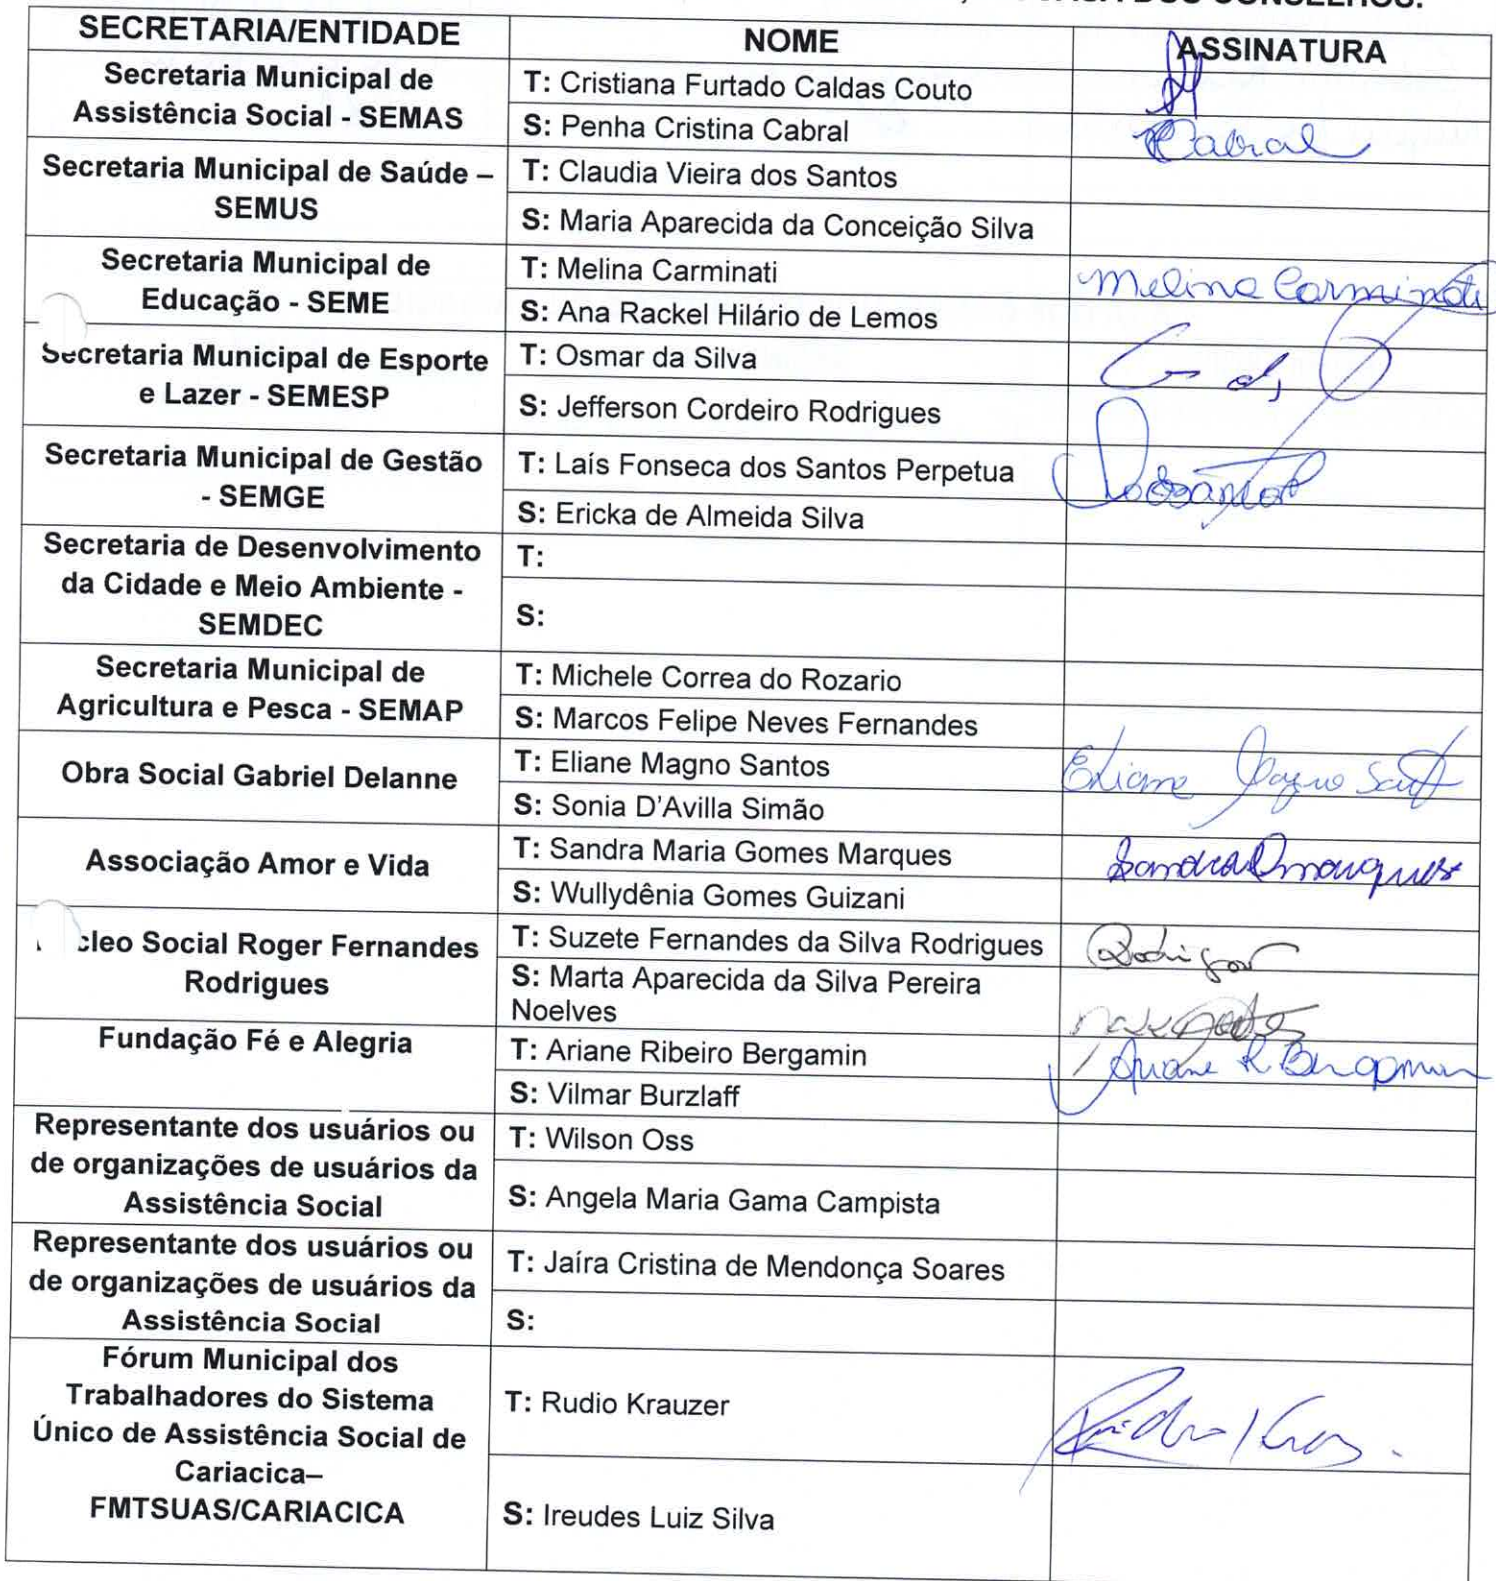 CASA DOS CONSELHOS.
SECRETARIA/ENTIDADE NOME ASSINATURA
Secretaria Municipal de
Assistência Social - SEMAS
T: Cristiana Furtado Caldas Couto
S: Penha Cristina Cabral
Cabral
Secretaria Municipal de Saúde –
SEMUS
T: Claudia Vieira dos Santos
S: Maria Aparecida da Conceição Silva
Secretaria Municipal de
Educação - SEME
T: Melina Carminati
Melina Carminati
S: Ana Rackel Hilário de Lemos
Secretaria Municipal de Esporte
e Lazer - SEMESP
T: Osmar da Silva
S: Jefferson Cordeiro Rodrigues
Secretaria Municipal de Gestão
- SEMGE
T: Laís Fonseca dos Santos Perpetua
S: Ericka de Almeida Silva
Secretaria de Desenvolvimento
da Cidade e Meio Ambiente -
SEMDEC
T:
S:
Secretaria Municipal de
Agricultura e Pesca - SEMAP
T: Michele Correa do Rozario
S: Marcos Felipe Neves Fernandes
Obra Social Gabriel Delanne
T: Eliane Magno Santos
Eliane Magno
S: Sonia D'Avilla Simão
Associação Amor e Vida
T: Sandra Maria Gomes Marques
S: Wullydênia Gomes Guizani
cleo Social Roger Fernandes
Rodrigues
T: Suzete Fernandes da Silva Rodrigues
S: Marta Aparecida da Silva Pereira
Noelves
Fundação Fé e Alegria
T: Ariane Ribeiro Bergamin
Ariane R. Bergamin
S: Vilmar Burzlaff
Representante dos usuários ou
de organizações de usuários da
Assistência Social
T: Wilson Oss
S: Angela Maria Gama Campista
Representante dos usuários ou
de organizações de usuários da
Assistência Social
T: Jaíra Cristina de Mendonça Soares
S:
Fórum Municipal dos
Trabalhadores do Sistema
Único de Assistência Social de
Cariacica–
FMTSUAS/CARIACICA
T: Rudio Krauzer
S: Ireudes Luiz Silva